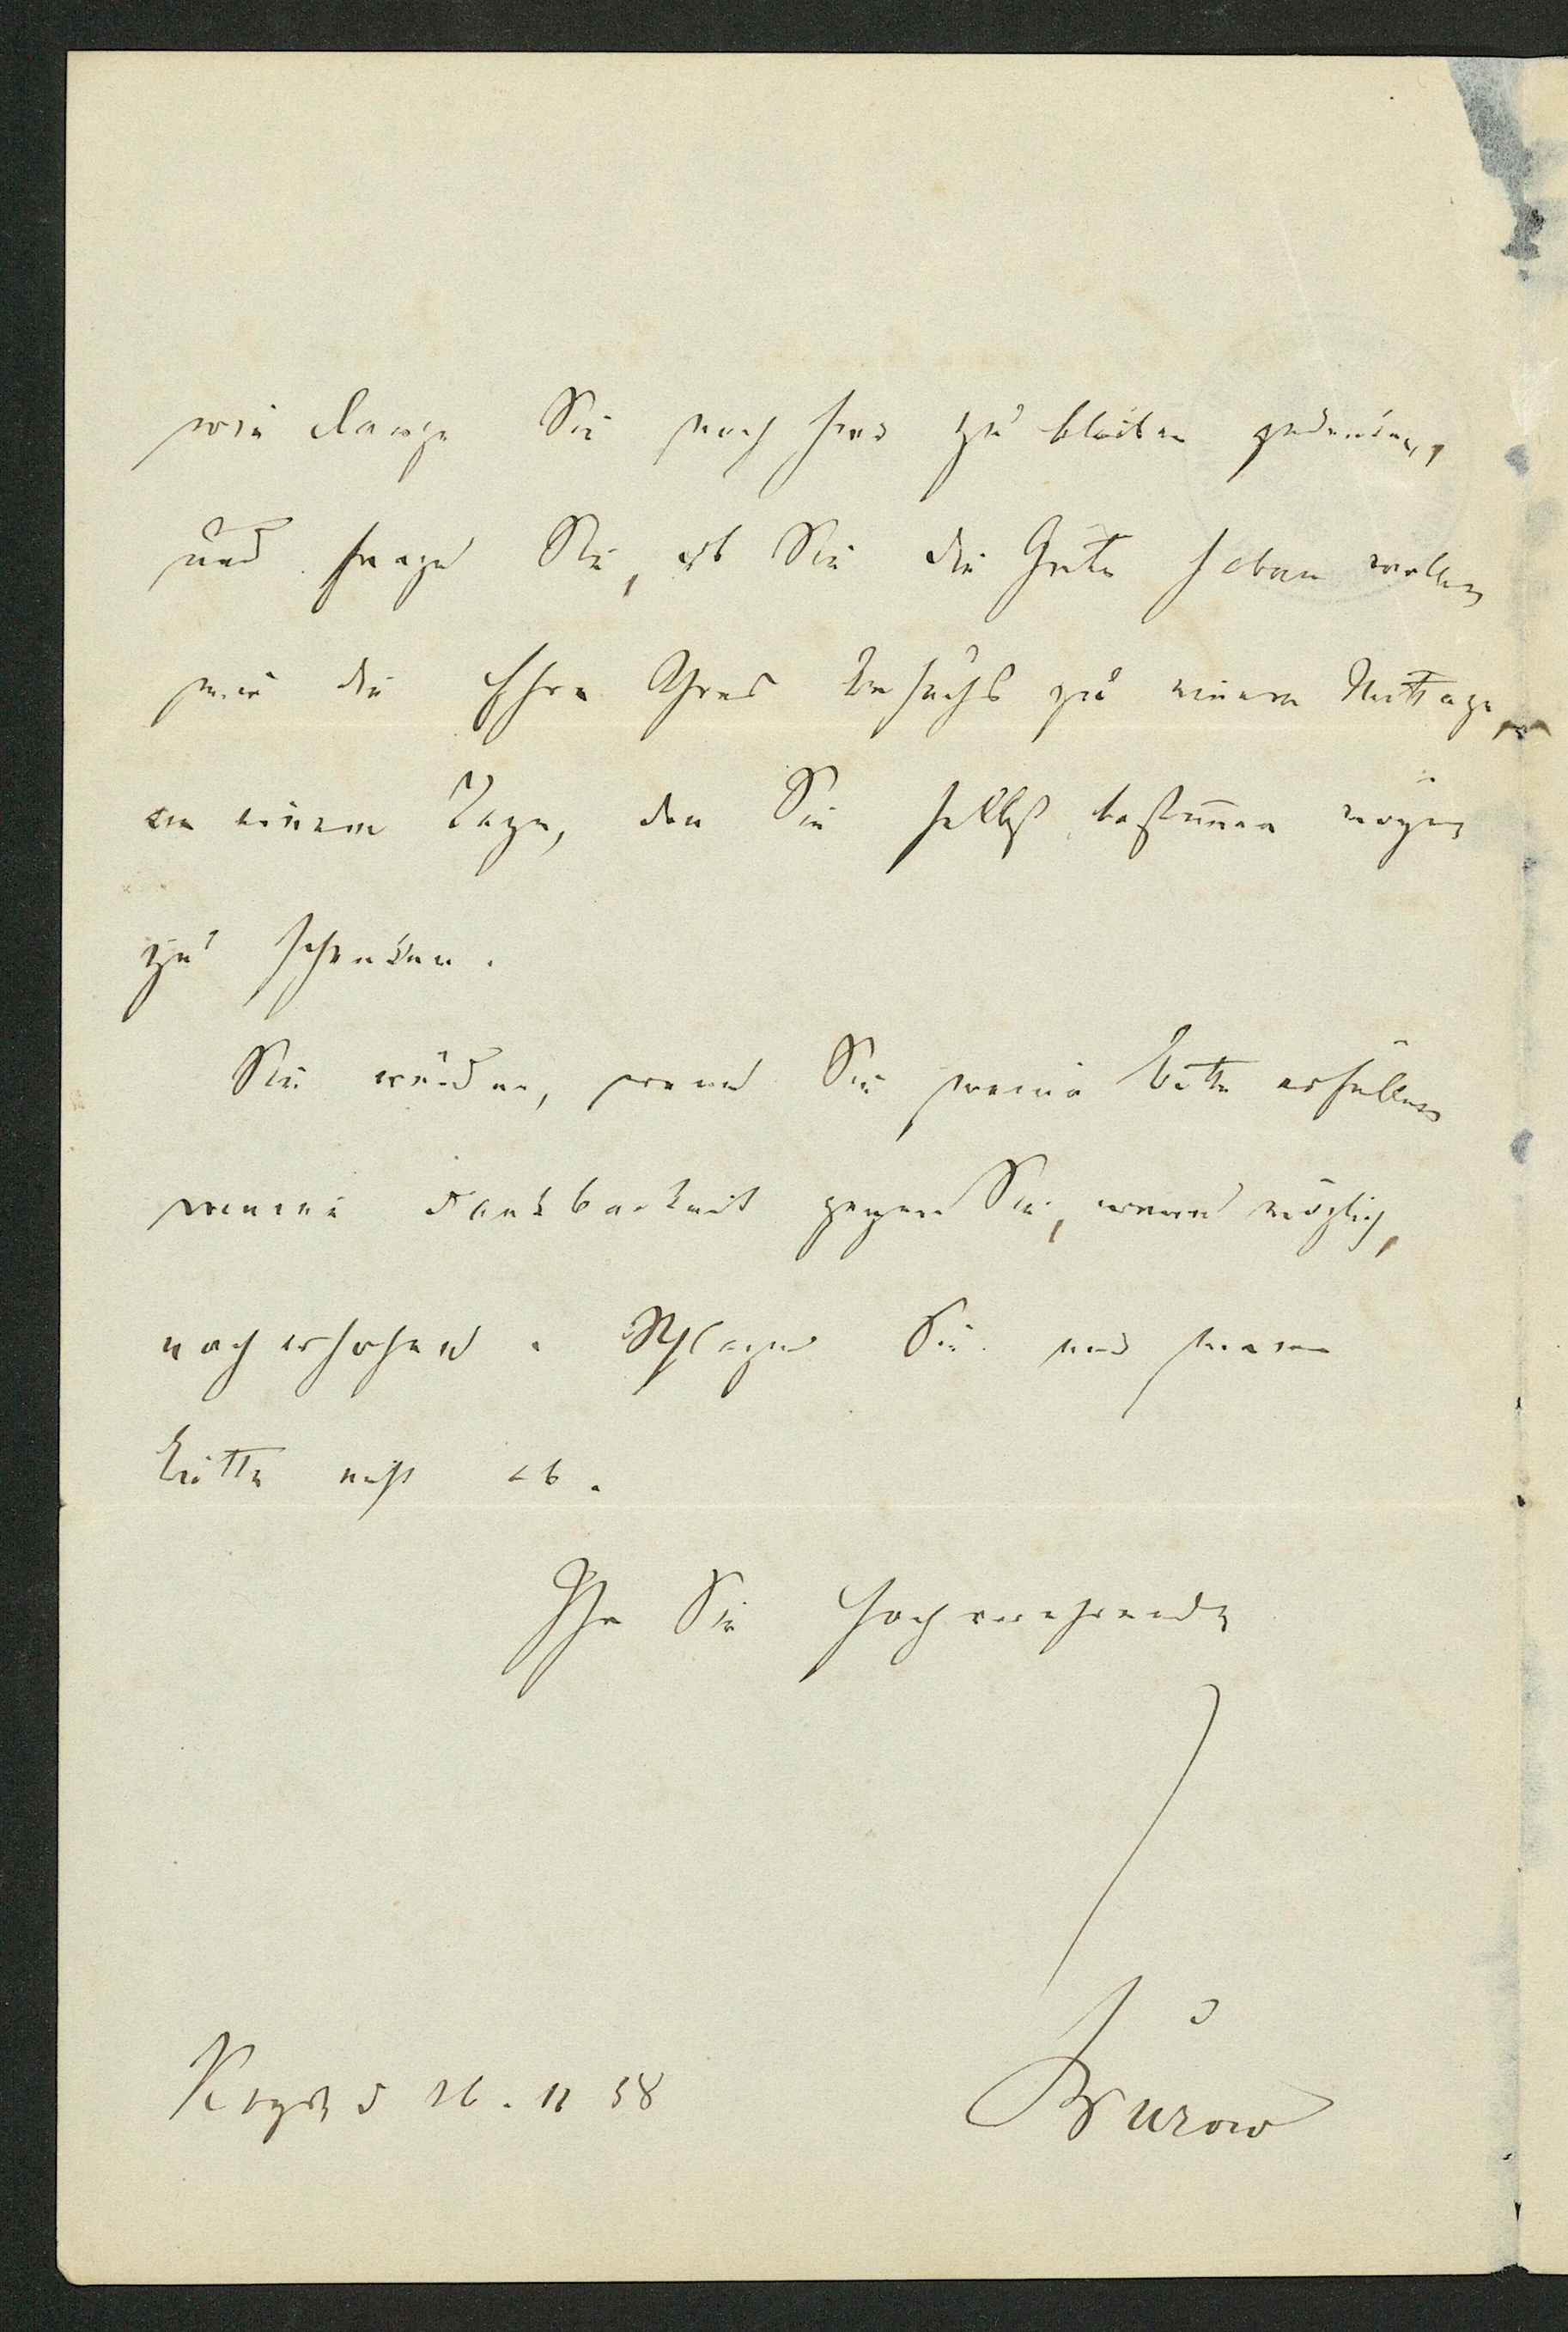 wie lange Sie noch hier zu bleiben gedenken,
und frage Sie, ob Sie die Güte haben wollen
mir die Ehre Ihres Besuchs zu einem Mittage,
an einem Tage, den Sie selbst bestimmen mögen
zu schenken.
Sie würden, wenn Sie meine Bitte erfüllen
meine Dankbarkeit gegen Sie, wenn möglich,
noch erhöhen. Schlagen Sie mir meine
Bitte nicht ab.
Ihr Sie hochverehrender
Burow
Kngsb d 26. 11 58